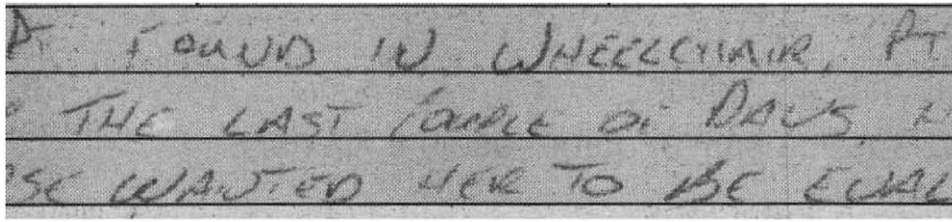 PT FOUND IN WHEELCHAIR, PT
THE LAST COUPLE OF DAYS
WANTED HER TO BE EVAL